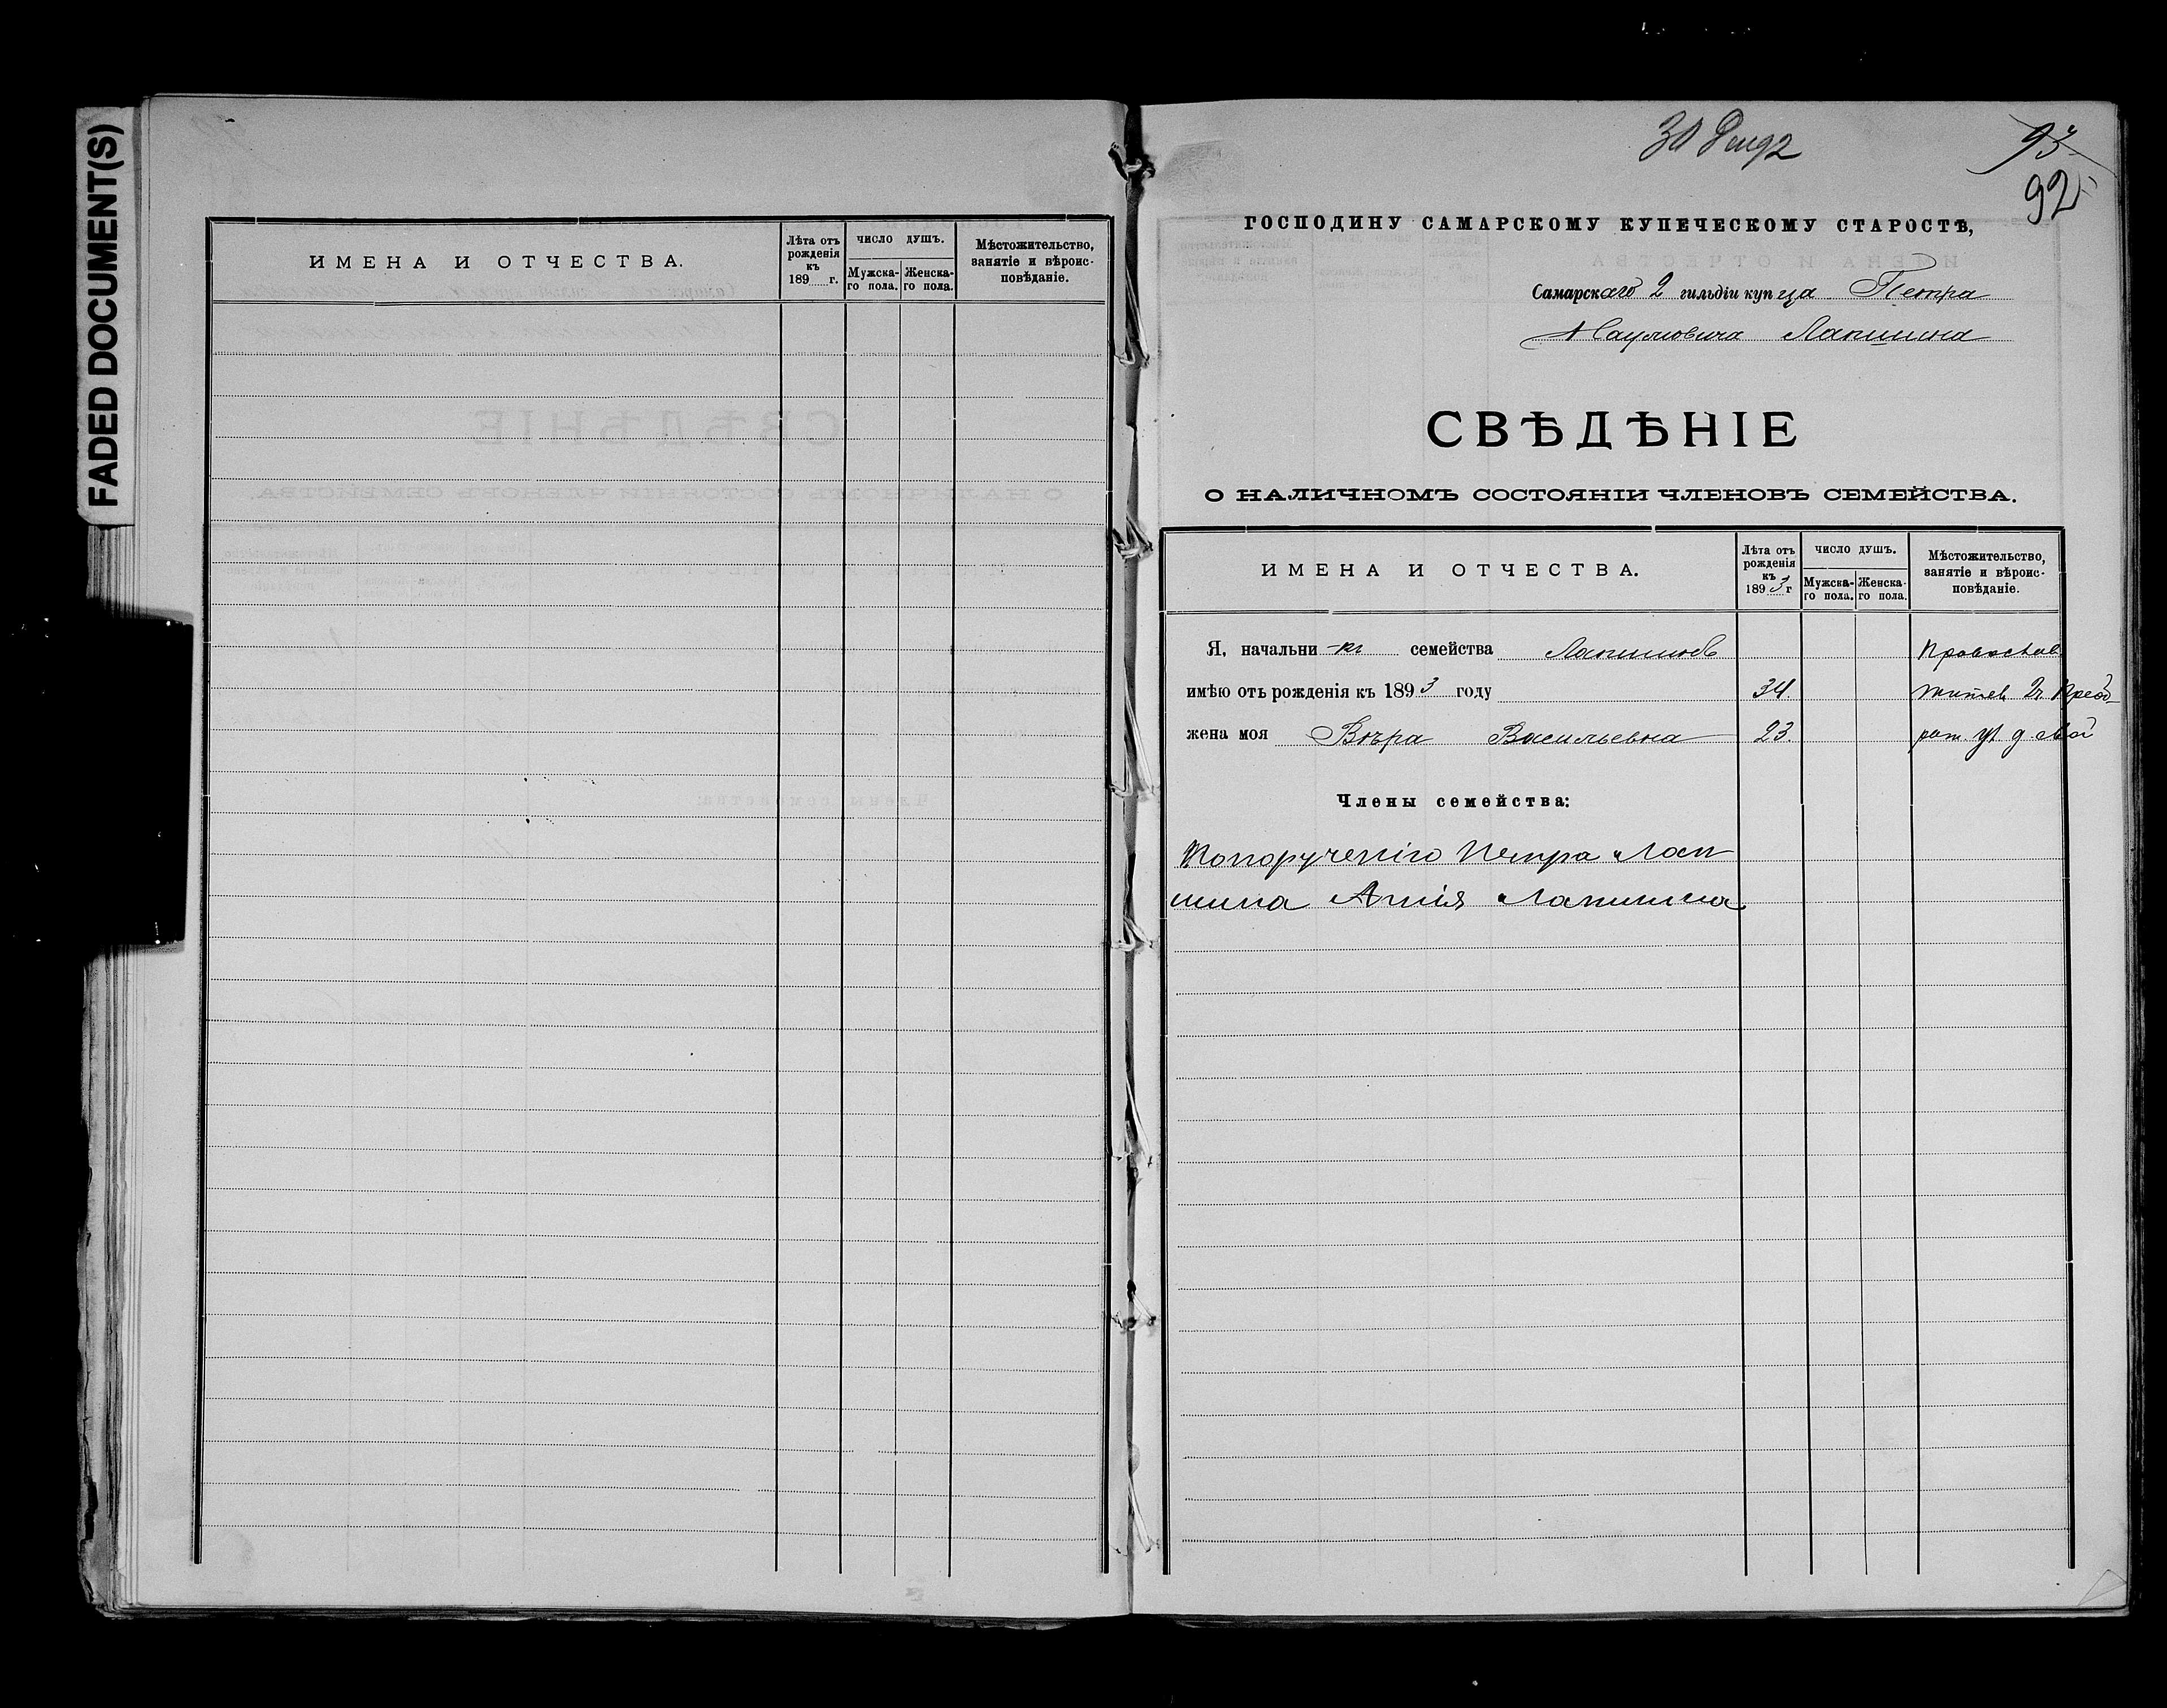 FADED DOCUMENT(S)
ИМЕНА И ОТЧЕСТВА.
Лѣта отъ рожденія къ 189 г.
ЧИСЛО ДУШЪ.
Мужска-го пола.
Женска-го пола.
Мѣстожительство, занятіе и вѣроис-повѣданіе.
30 Дек 92
93
92
ГОСПОДИНУ САМАРСКОМУ КУПЕЧЕСКОМУ СТАРОСТѢ,
Самарскаго 2 гильдіи купца Петра
Наумовича Лапшина
СВѢДѢНІЕ
О НАЛИЧНОМЪ СОСТОЯНІИ ЧЛЕНОВЪ СЕМЕЙСТВА.
ИМЕНА И ОТЧЕСТВА.
Лѣта отъ рожденія къ 1893 г
ЧИСЛО ДУШЪ.
Мужска-го пола.
Женска-го пола.
Мѣстожительство, занятіе и вѣроис-повѣданіе.
Я, начальникъ семейства Лапшинъ Православ
имѣю отъ рожденія къ 1893 году 34. жител 2ч. Преоб
жена моя Вѣра Васильевна 23. уг д свой
Члены семейства:
Попорученію Петра Лап
шина Лапшина